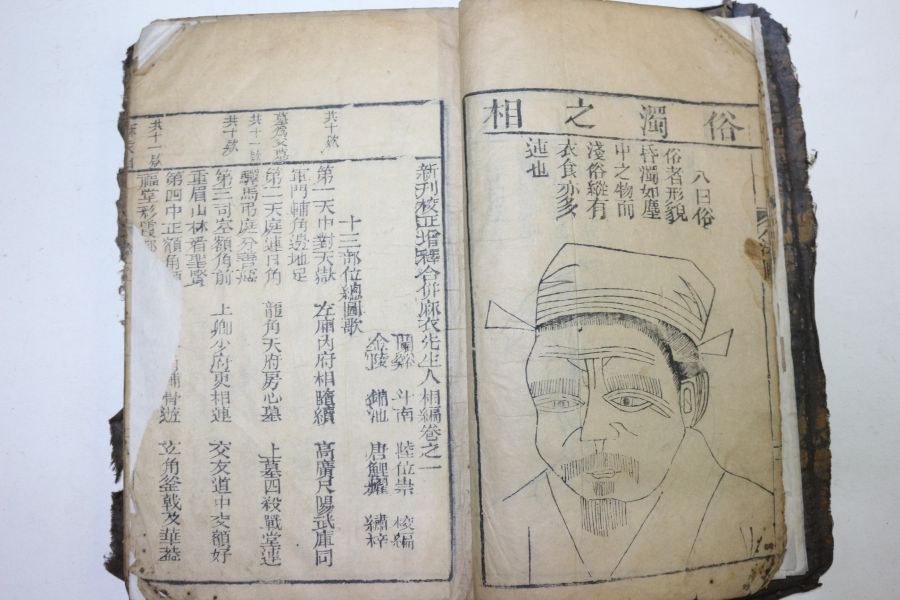 俗濁之相
八曰俗
俗者形貌
昏濁如塵
中之物而
淺俗縱有
衣食亦多
迍也
新刊校正增釋合併麻衣先生人相編卷之一
蘭谿 斗南 陸位崇 校編
金陵 錦池 唐鯉耀 繡梓
十三部位總圖歌
共十款
第一天中對天嶽 左廂內府相隨續 高廣尺陽武庫同
軍門輔角邊地足
第二天庭連日角 龍角天府房心墓 上墓四殺戰堂連
共十一款
驛馬弔庭分善惡
共十款
第三司空額角前 上卿少府更相連 交友道中交額好
重眉山林看聖賢
共十一款
第四中正額角 輔骨遊 玄角斧戟及華蓋
福堂彩霞郊